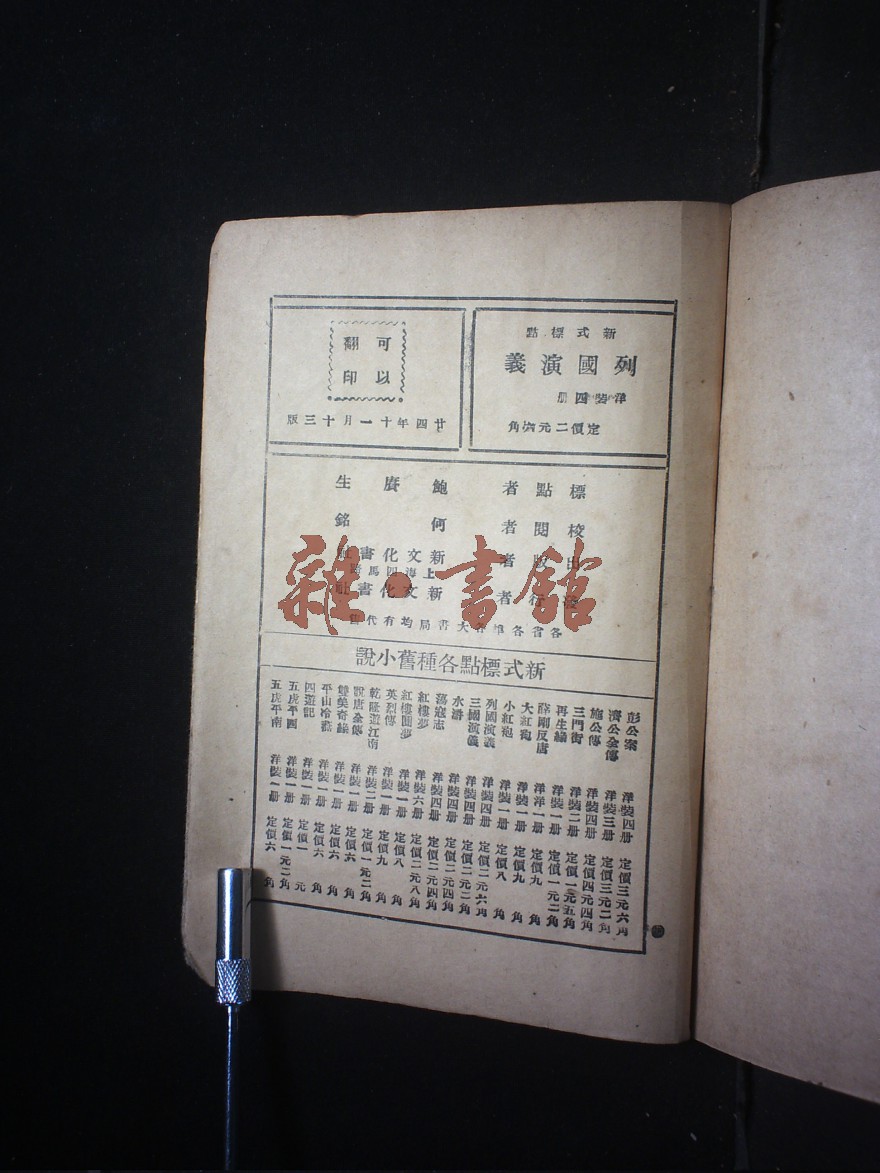 新式標點
列國演義
洋裝四册
定價二元六角
可以
翻印
廿四年十一月十三版
標點者 鮑賡生
校閱者 何銘
出版者 新文化書社
上海四馬路
發行者 新文化書社
各省各埠各大書局均有代售
雜·書館
新式標點各種舊小說
彭公案 洋裝四册 定價三元六角
濟公全傳 洋裝三册 定價三元二角
施公傳 洋裝四册 定價四元四角
三門街 洋裝二册 定價一元五角
再生緣 洋裝一册 定價一元二角
薛剛反唐 洋洋一册 定價九角
大紅袍 洋裝一册 定價九角
小紅袍 洋裝一册 定價八角
列國演義 洋裝四册 定價二元六角
三國演義 洋裝四册 定價二元二角
水滸 洋裝四册 定價二元四角
蕩寇志 洋裝四册 定價二元四角
紅樓夢 洋裝六册 定價二元八角
紅樓圓夢 洋裝一册 定價八角
英烈傳 洋裝一册 定價九角
乾隆遊江南 洋裝二册 定價一元二角
說唐全傳 洋裝一册 定價六角
雙美奇緣 洋裝一册 定價六角
平山冷燕 洋裝一册 定價六角
四遊記 洋裝一册 定價一元
五虎平西 洋裝一册 定價一元二角
五虎平南 洋裝一册 定價六角